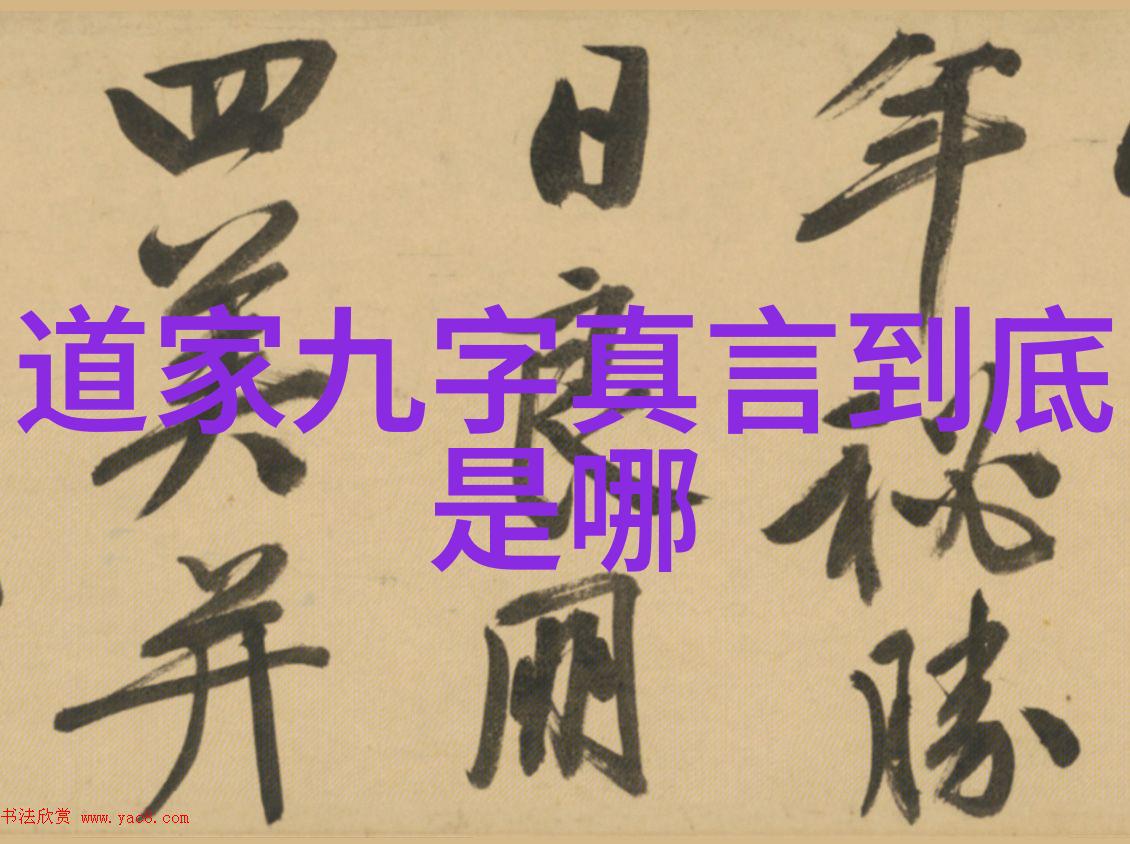 年秘勝
日良朋
四美并
道家九字真言到底
是哪
书法欣赏 www.yac8.com